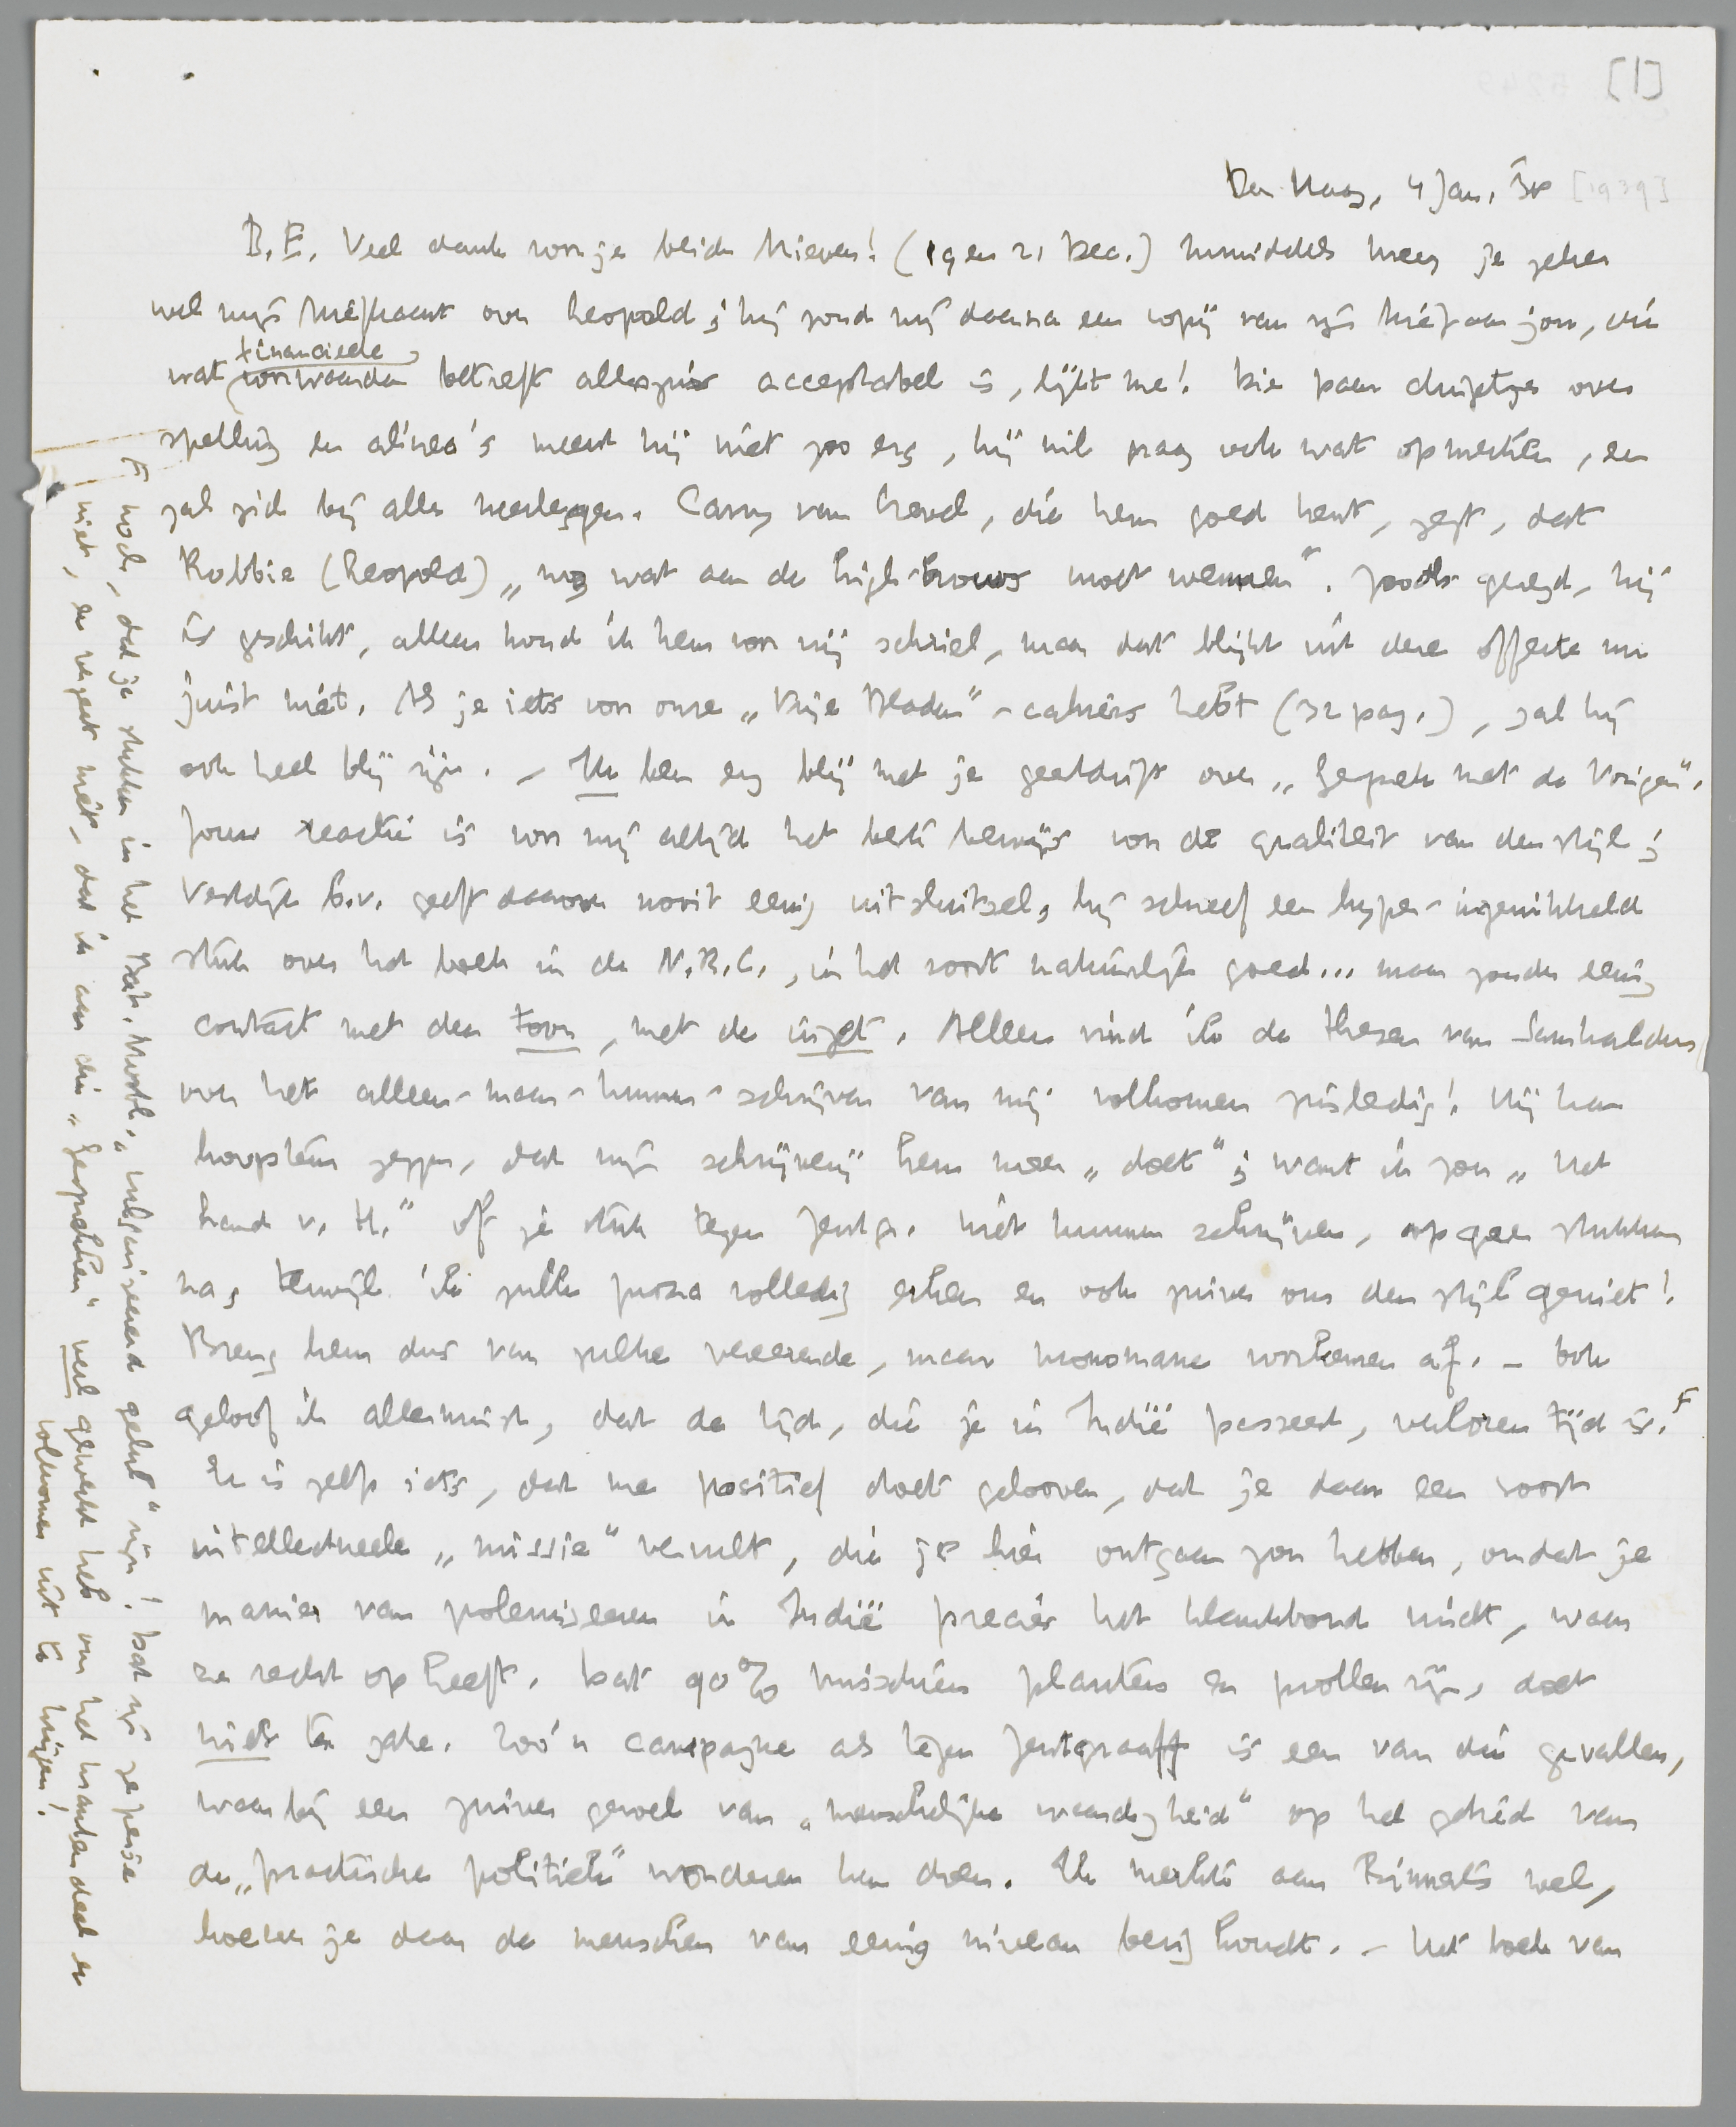 [1]
Den Haag, 4 Jan. 38 [1939]
B.E. Veel dank voor je beide brieven! (19 en 21 Dec.) Inmiddels kreeg je zeker
wel mijn briefkaart over Leopold; hij zond mij daarna een copij van zijn brief aan jou, die
wat financieele voorwaarden betreft alleszins acceptabel is, lijkt me! Die paar dingetjes over
spelling en alinea's meent hij niet zoo erg, hij wil graag ook wat opmerken, en
zal zich bij alles neerleggen. Carry van Crevel, die hem goed kent, zegt, dat
Robbie (Leopold) „nog wat aan de high-brows moet wennen". Zooals gezegd, hij
is geschikt, alleen houd ik hem voor vrij schriel, maar dat blijkt uit deze offerte nu
juist niet. Als je iets voor onze „Vrije Bladen"-cahiers hebt (32 pag.), zal hij
ook heel blij zijn. – Ik ben erg blij met je geestdrift over „Gesprek met de Vorigen".
Jouw reactie is voor mij altijd het beste bewijs voor de qualiteit van den stijl;
Vestdijk b.v. geeft daarover nooit eenig uitsluitsel, hij schreef een hyper-ingewikkeld
stuk over het boek in de N.R.C., in het soort natuurlijk goed... maar zonder eenig
contact met den toon, met de inzet. Alleen vind ik de these van Samkalden
over het alleen-maar-kunnen-schrijven van mij volkomen onzinnig! Hij kan
hoogstens zeggen, dat mijn schrijverij hem meer „doet"; want ik zou „Het
Land v. H." of je stuk tegen Zentgr. niet kunnen schrijven, op geen stukken
na, terwijl ik zulk proza volledig erken en ook zuiver om den stijl geniet!
Breng hem dus van zulke vereerende, maar monomane voorkeuren af. – Ook
geloof ik allerminst, dat de tijd, die je in Indië passeert, verloren tijd is. F
Er is zelfs iets, dat me positief doet gelooven, dat je daar een soort
intellectueele „missie" vervult, die je hier ontgaan zou hebben, omdat je
manier van polemiseeren in Indië precies het klankbord vindt, waar
ze recht op heeft. Dat 90% misschien planters en prollen zijn, doet
niets ter zake. Zoo'n campagne als tegen Zentgraaff is een van die gevallen,
waarbij een zuiver gevoel van „menschelijke waardigheid" op het gebied van
de „practische politiek" wonderen kan doen. Ik merkte aan Binnerts wel,
hoezeer je daar de menschen van eenig niveau bezig houdt. – Het boek van
F noch, dat je stukken in het Bat. Nwsbl. „vulgariseerend geklets" zijn! Dat zijn ze heusch
niet, en vergeet niet, dat ik aan die „gesprekken" veel gewerkt heb om het krantendeel er
volkomen uit te krijgen!